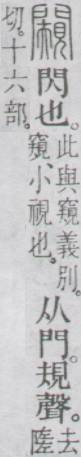 闚閃也。此與窺義別。窺、小視也。从門。規聲。去
切。十六部。